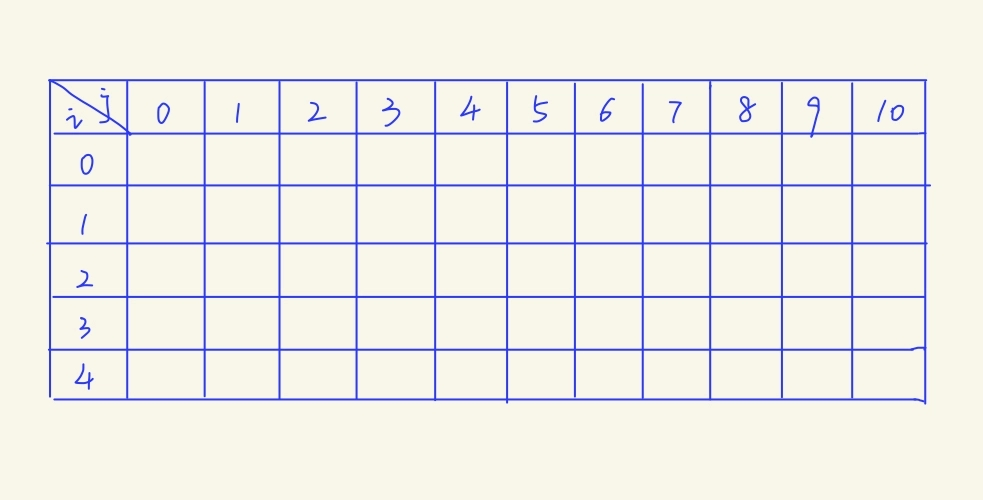 i j 0 1 2 3 4 5 6 7 8 9 10
0
1
2
3
4